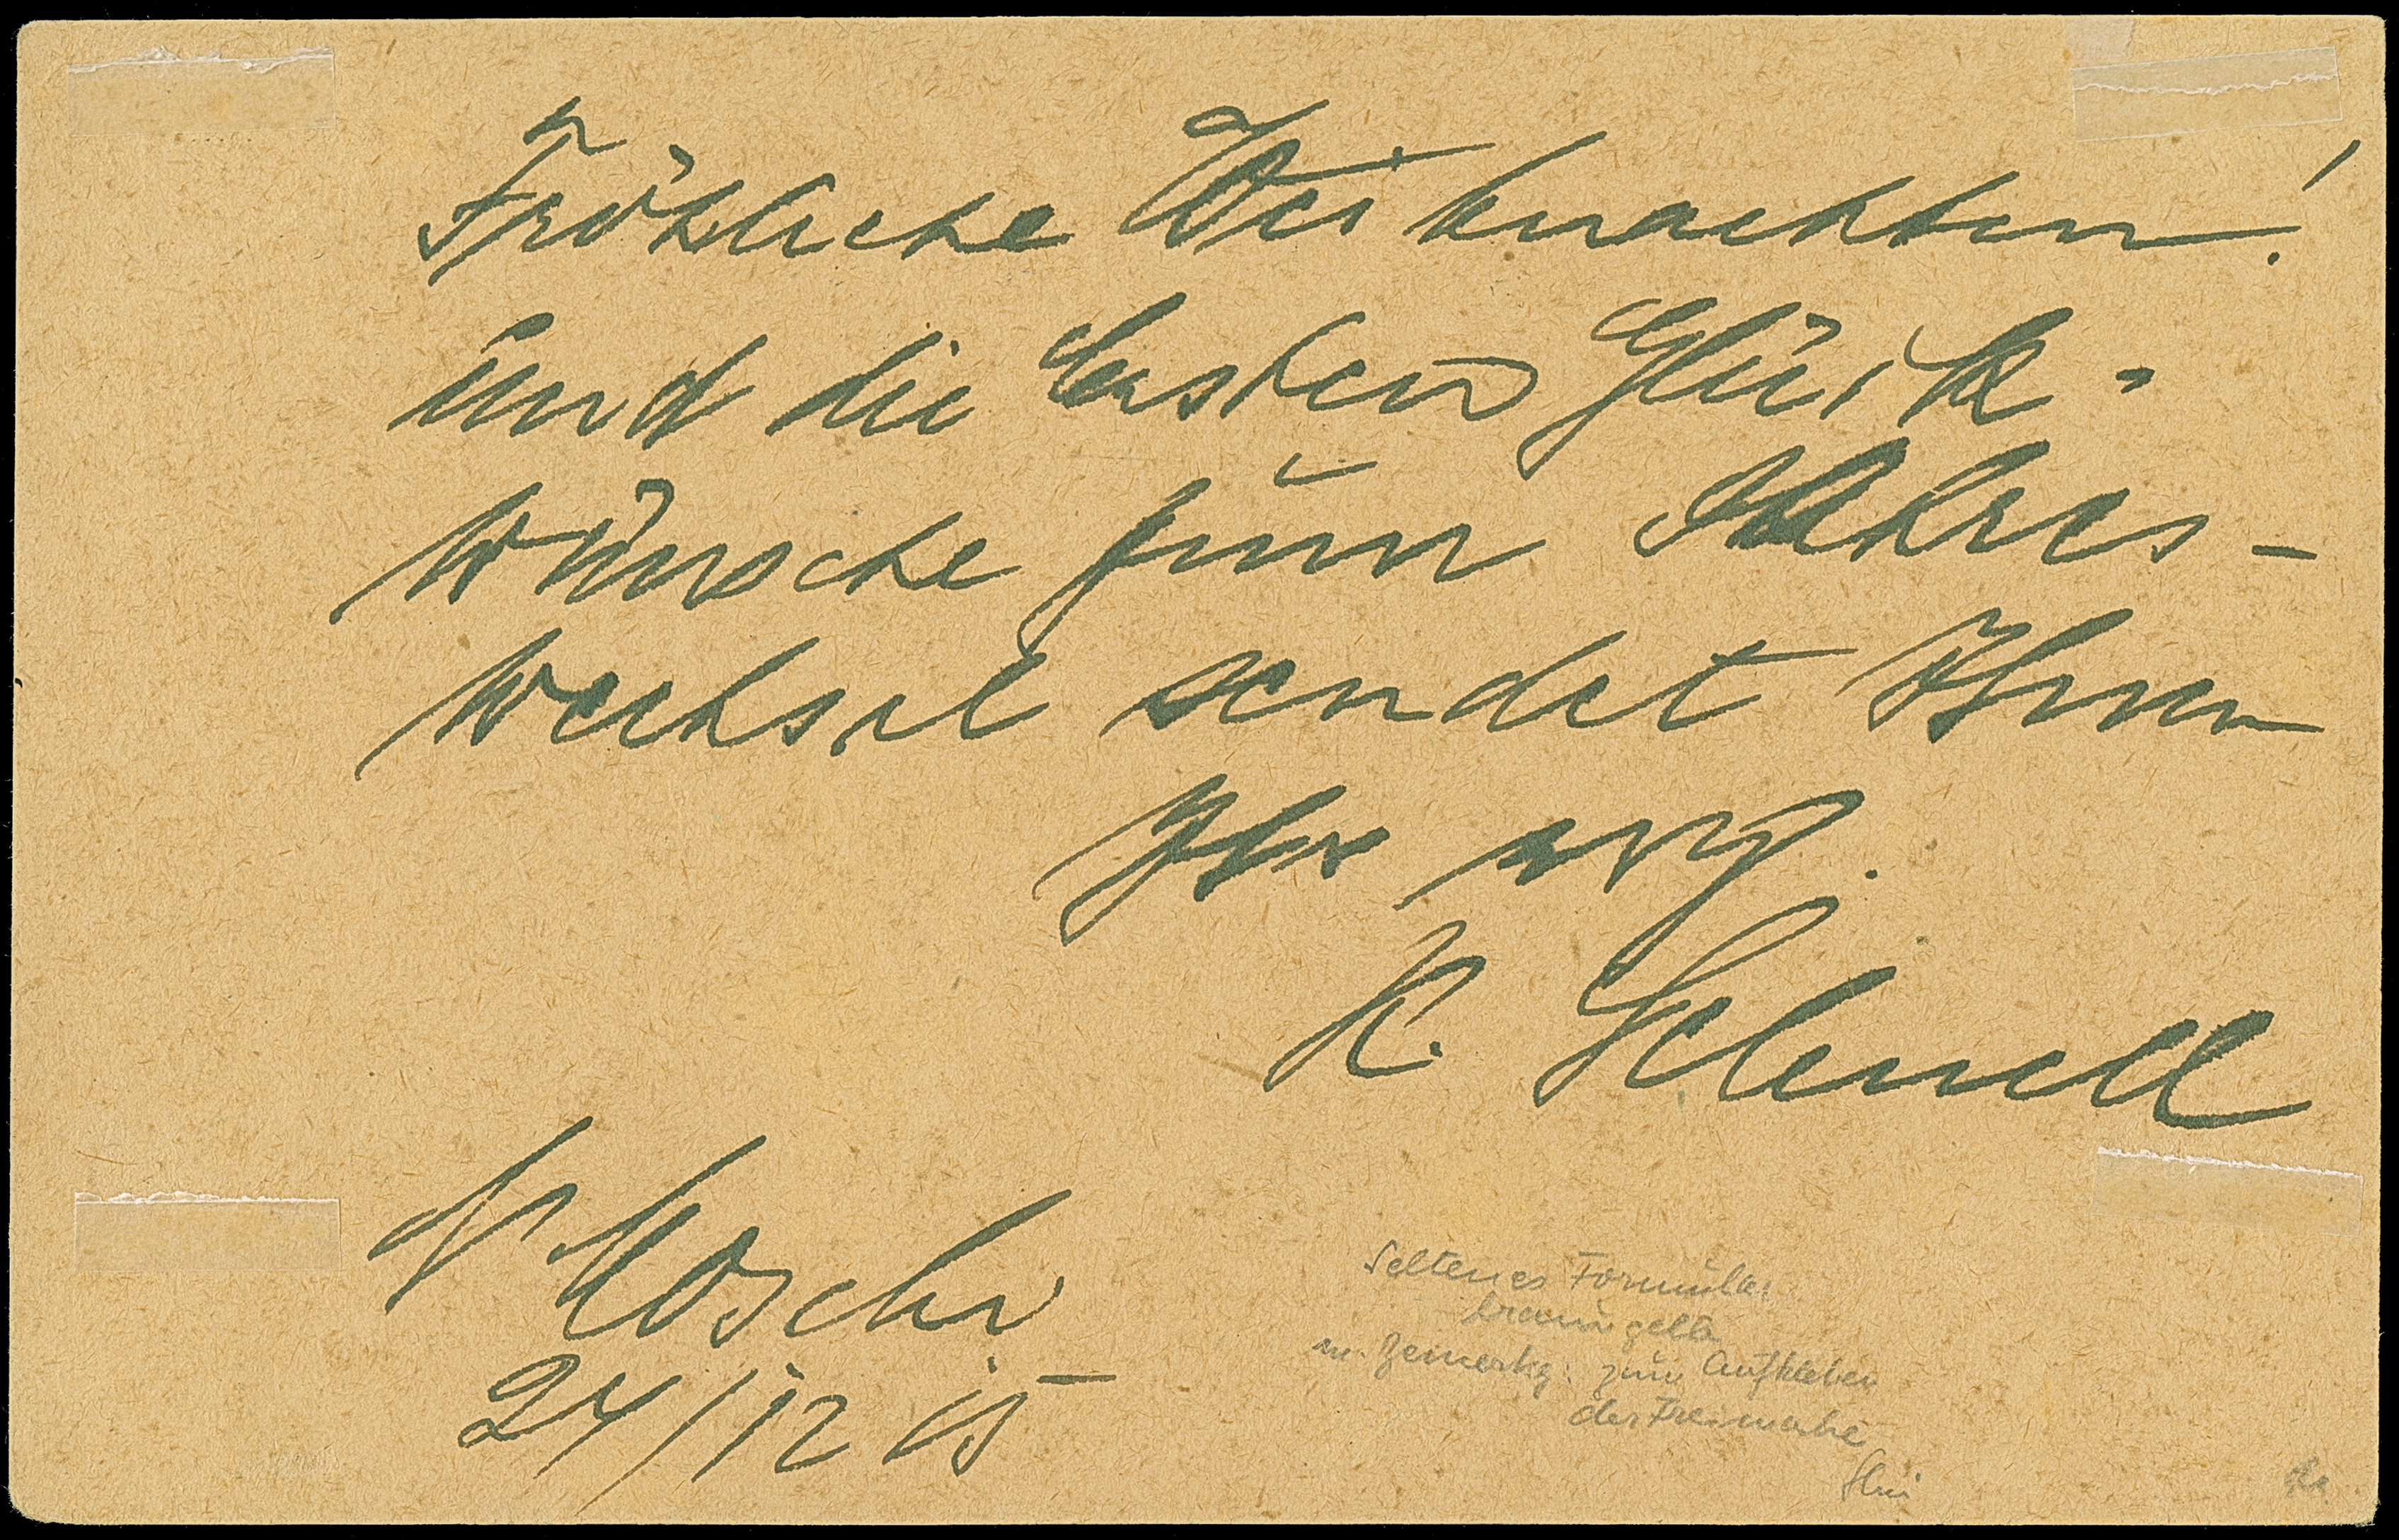 Fröhliche Weihnachten!
und die besten Glück-
wünsche zum Jahres-
wechsel sendet Ihnen
Ihr erg.
K. Schnell
N Moschi
24/12 15
Seltenes Formular
braungelb
m. Bemerkg: zum Aufkleben
der Freimarke